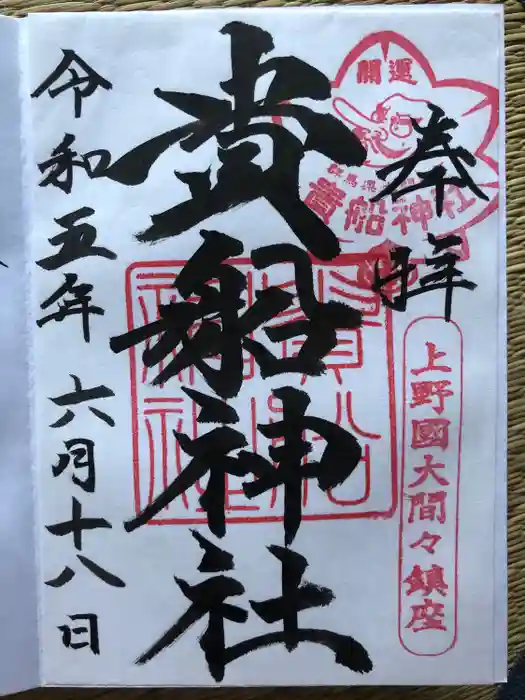 奉拝
開運
群馬県
貴船神社
上野國大間々鎮座
貴船神社
令和五年六月十八日